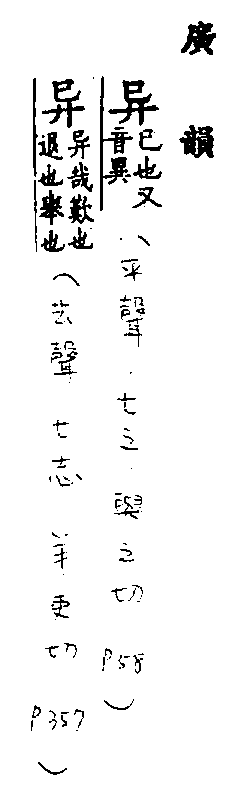 廣韻
异 已也又音異（平聲．七之．與之切 P58）
异 异哉歎也退也舉也（去聲 七志 羊吏切 P357）